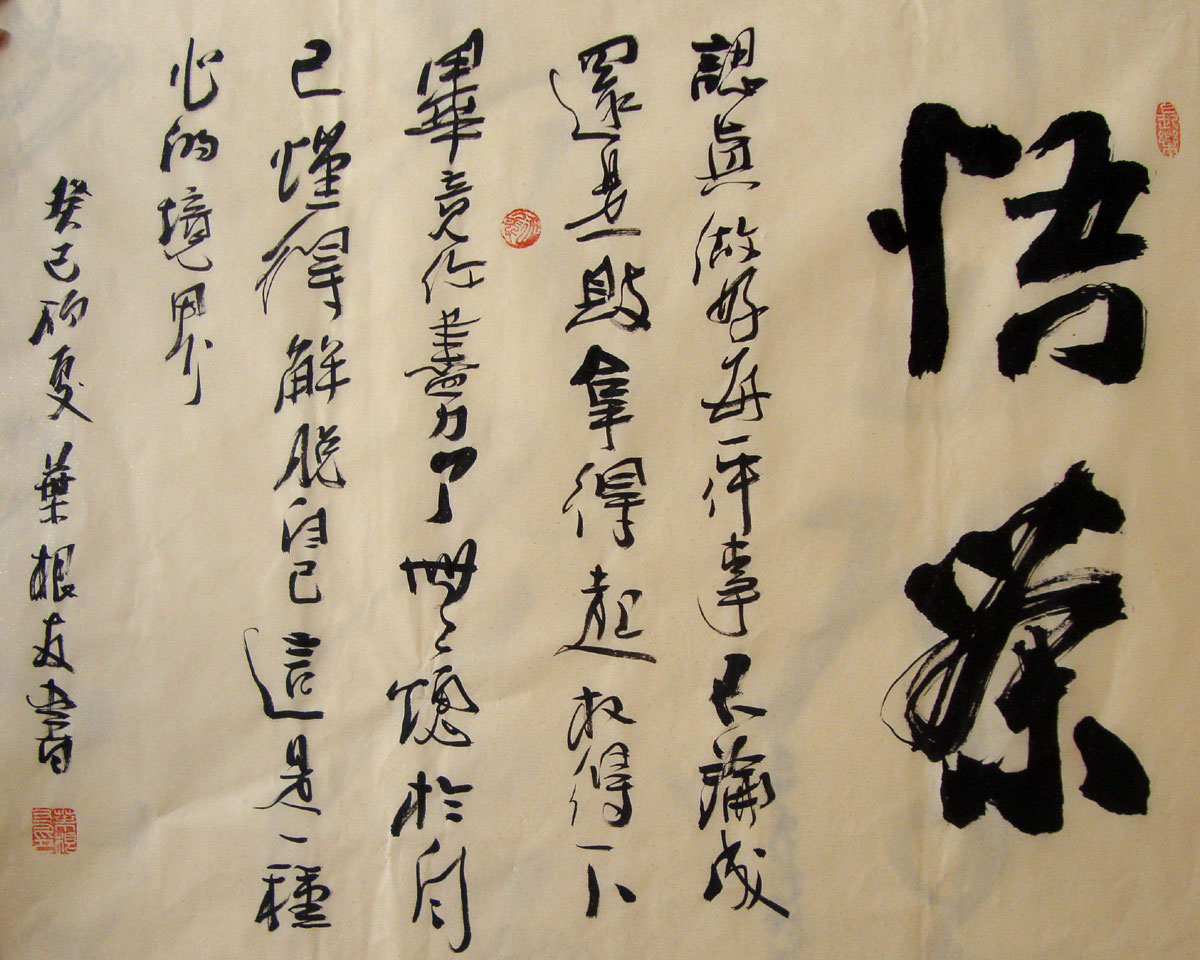 悟
認真做好每一件事不論成
還是敗拿得起放得下
畢竟你盡力了無愧於自
己懂得解脫自己這是一種
心的境界
癸巳初夏 葉根友書